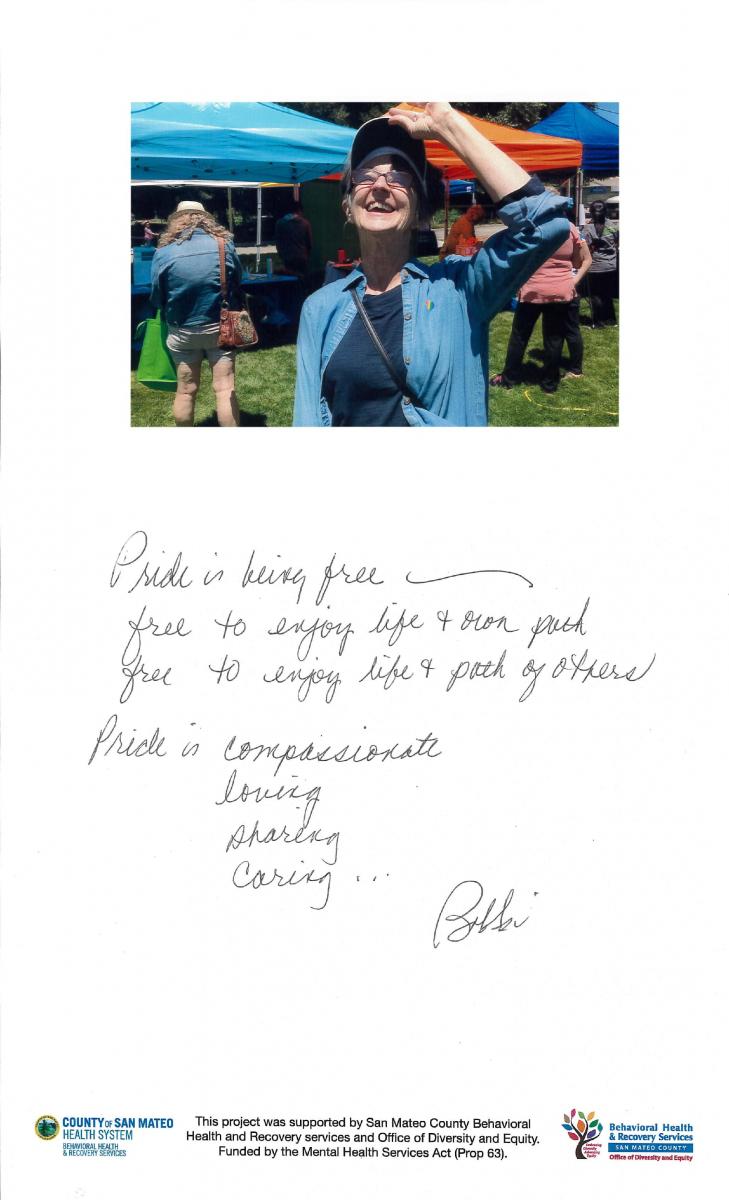 Pride is being free
free to enjoy life & own path
free to enjoy life & path of others
Pride is compassionate
loving
sharing
caring ...
Bobbi
COUNTY OF SAN MATEO
HEALTH SYSTEM
BEHAVIORAL HEALTH
& RECOVERY SERVICES
This project was supported by San Mateo County Behavioral
Health and Recovery services and Office of Diversity and Equity.
Funded by the Mental Health Services Act (Prop 63).
Embracing
Diversity
Advancing
Equity
Behavioral Health
& Recovery Services
SAN MATEO COUNTY
Office of Diversity and Equity